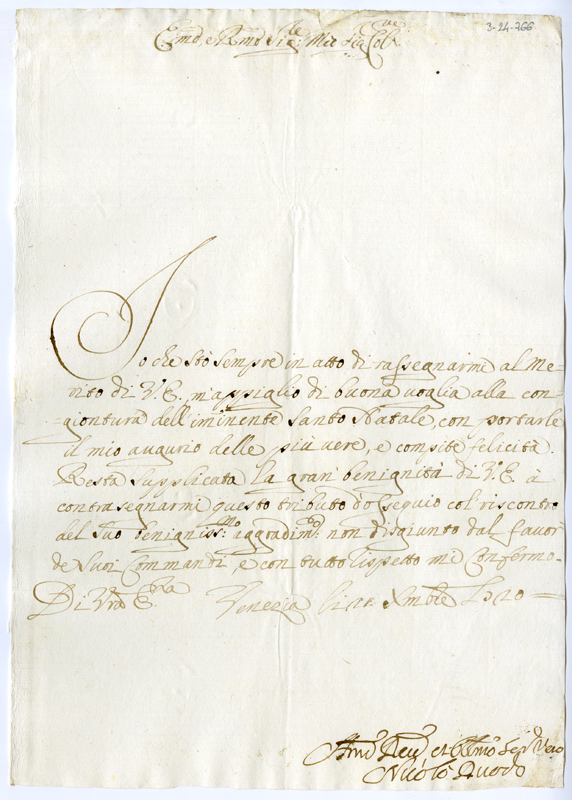 3-24-766
Em̃o, e Rmo Sig.re: Mio Sig Col.mo
Io che stò sempre in atto di rassegnarmi al Me-
rito di V.E. m'appiglio di buona voglia alla con-
giontura dell'iminente Santo Natale, con portarle
il mio augurio delle più vere, e compite felicità.
Resta supplicata la gran benignità di V.E. à
contrasegnarmi questo tributo d'osseguio col riscontro
del suo benigniss:mo aggradim:to non disgiunto dal favor
de suoi Commandi, e con tutto rispetto mi Confermo-
Di Vra E.za Venezia li Xmbre
Nicolò Duodo